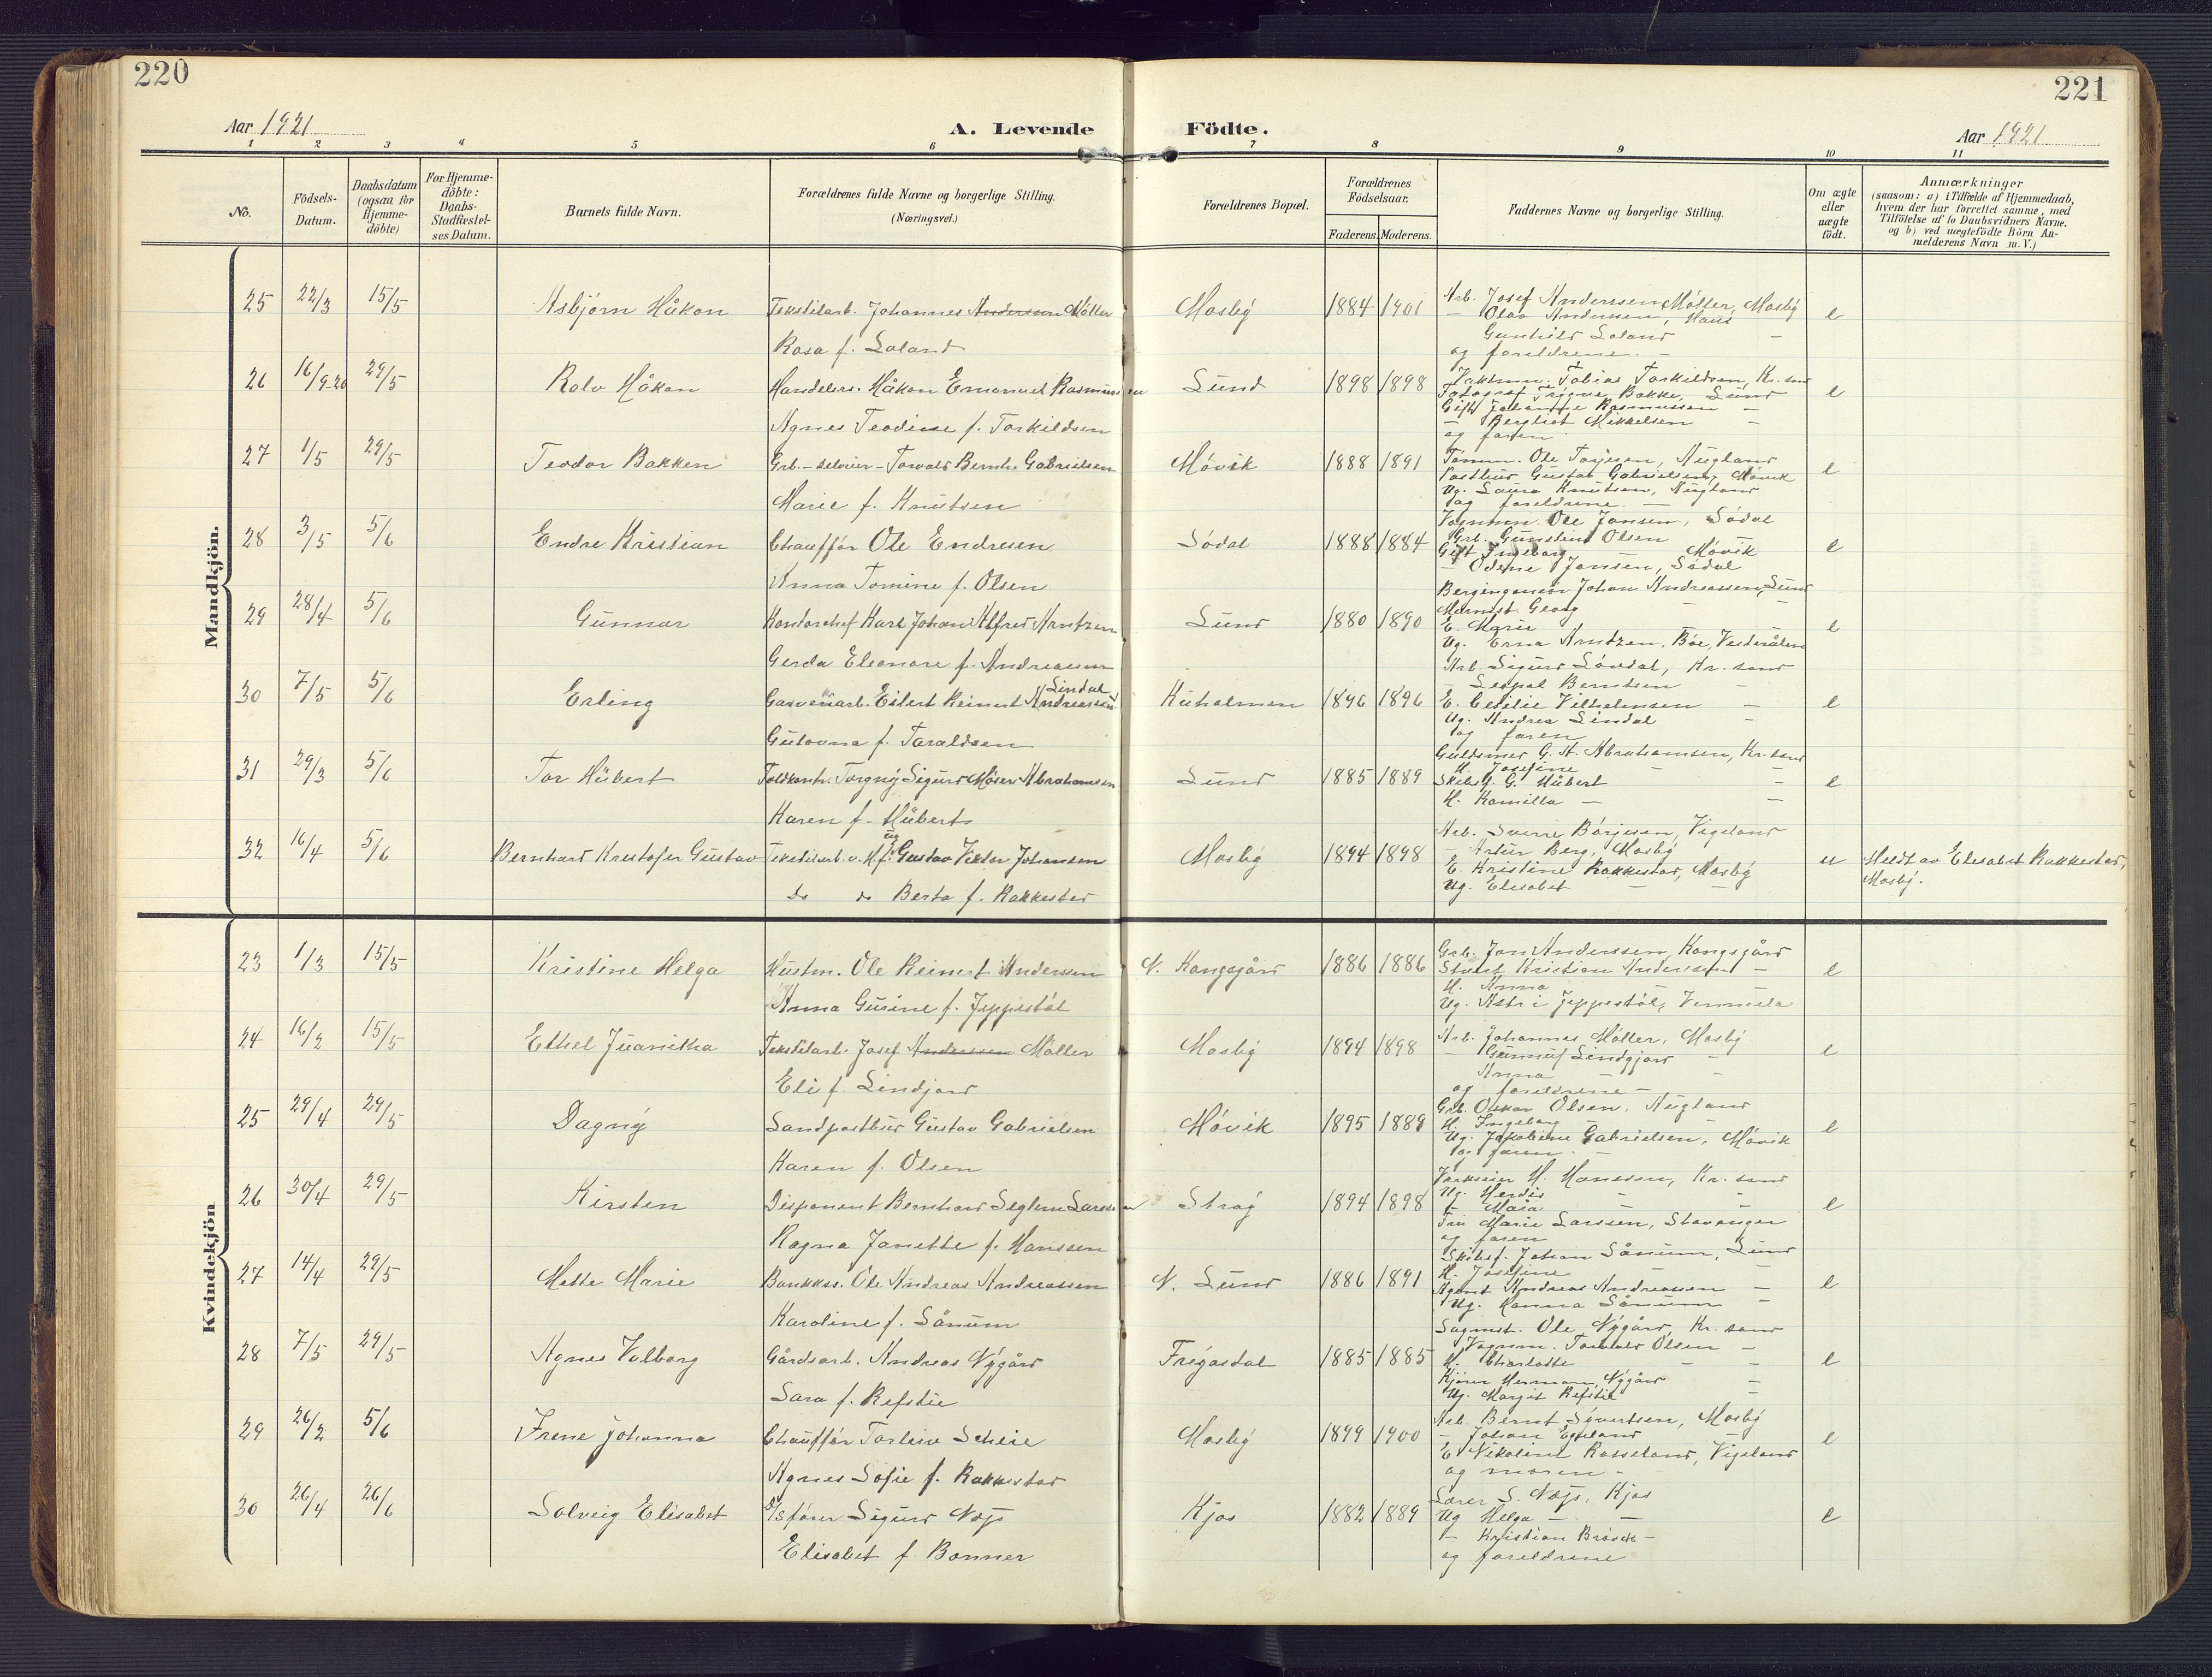 220
221
Aar 1921
A. Levende Födte.
Aar 1921
1 2 3 4 5 6 7 8 9 10 11
No.
Födsels-Datum.
Daabsdatum (ogsaa for Hjemme-döbte)
For Hjemme-döbte: Daabs-Stadfæstel-ses Datum.
Barnets fulde Navn.
Forældrenes fulde Navne og borgerlige Stilling.
(Næringsvei.)
Forældrenes Bopæl.
Forældrenes Födselsaar.
Faderens. Moderens.
Faddernes Navne og borgerlige Stilling.
Om ægte eller uægte födt.
Anmærkninger
(saasom: a) i Tilfælde af Hjemmedaab, hvem der har forrettet samme, med Tilföielse af to Daabsvidners Navne. og b) ved uægtefödte Börn An-melderens Navn m. V.)
Mandkjön.
25 22/3 15/5 Asbjørn Håkon Tekstilarb. Johannes Anderssen Møller Mosby 1884 1901 Arb. Josef Anderssen Møller, Mosby e
Rosa f. Loland
— Olav Anderssen, Haus
Gunhild Loland —
og foreldrene. —
26 16/9-20 29/5 Rolv Håkon Handelsr. Håkon Emanuel Rasmussen Lund 1898 1898 Tobias Torkildsen, Kr. sand e
Agnes Teodine f. Torkildsen
Fotograf Trygve Bakke, Lund
Gift Johanne Rasmussen —
— Bergliot Mikkelsen —
og faren
27 1/5 29/5 Teodor Bakken Grb. - selveier - Torvald Bernh. Gabrielsen Møvik 1888 1891 Tømm. Ole Torjesen, Augland e
Marie f. Knutsen
Postbud Gustav Gabrielsen, Møvik
Ug. Laura Knutsen, Augland
og foreldrene. —
28 3/5 5/6 Endre Kristian Chauffør Ole Endresen Sødal 1888 1884 Vognm. Ole Jansen, Sødal e
Anna Tomine f. Olsen
Grb. Gunstein Olsen —
Gift Ingeborg Møvik
— Odene Jansen, Sødal
29 28/4 5/6 Gunnar Kontorchef Karl Johan Alfred Arntzen Lund 1880 1890 Bergingeniør Johan Andreassen, Lund e
Gerda Eleonore f. Andreassen
Georg — —
E. Marie
Ug. Erna Arntzen. Bøe, Vesterålen
30 7/5 5/6 Erling Garveriarb. Eilert Reinert Andreassen Lindal Kuholmen 1896 1896 Arb. Sigurd Lindal, Kr. sand e
Gulovna f. Taraldsen
— Leopol Berntsen —
E. Cecilie Vilhelmsen —
Ug. Andrea Lindal —
og faren
31 29/3 5/6 Tor Hübert Toldkontr. Torgny Sigurd Møser Abrahamsen Lund 1885 1889 Guldsmed G. A. Abrahamsen, Kr. sand e
Karen f. Hübert
H. Josefine — —
G. Hübert —
H. Kamilla — —
32 16/4 5/6 Bernhard Kristofer Gustav Tekstilarb. o. ug. f. Gustav Viktor Johansen Mosby 1894 1898 Arb. Sverre Børjesen, Vigeland u Meldt av Elisabet Rakkestad, Mosby.
do do Berta f. Rakkestad
— Artur Berg, Mosby
E. Kristine Rakkestad, Mosby
Ug. Elisabet — —
Kvindekjön
23 1/3 15/5 Kristine Helga Husm. Ole Reinert Andersen N. Kongsgård 1886 1886 Grb. Jon Anderssen, Kongsgård e
Anna Gurine f. Jeppestøl
Stud. Kristian Anderssen —
H. Anna —
Ug. Astri Jeppestøl, Vennesla
24 16/2 15/5 Ethel Juanitha Tekstilarb. Josef Anderssen Møller Mosby 1894 1898 Arb. Johannes Møller, Mosby e
Eli f. Lindjord
— Gunnulf Lindgjord —
Anna — —
og foreldrene —
25 29/4 29/5 Dagny Landpostbud Gustav Gabrielsen Møvik 1895 1889 Grb. Oskar Olsen, Augland e
Karen f. Olsen
H. Ingeborg —
Ug. Jakobine Gabrielsen, Møvik
og faren. —
26 30/4 29/5 Kirsten Disponent Bernhard Seglem Larssen Strøj 1894 1898 H. Hanssen, Kr. sand e
Ragna Janette f. Hanssen
Ug. Herdis — —
— Maia — —
Fru Marie Larssen, Stavanger
og faren
27 14/4 29/5 Mette Marie Bankkss. Ole Andreas Andreassen N. Lund 1886 1891 Skibsf. Johan Sånum, Lund e
Karoline f. Sånum
H. Josefine — —
Agent Andreas Andreassen —
Ug. Hanna Sånum —
28 7/5 29/5 Agnes Valborg Gårdsarb. Andreas Nygård Frigasdal 1885 1885 Sagmst. Ole Nygård, Kr. sand e
Sara f. Refstie
Vognm. Olsen —
H. Charlotte — —
Herman Nygård —
Ug. Margit Refstie —
29 26/2 5/6 Irene Johanna Chauffør Torleiv Scheie Mosby 1899 1900 Arb. Bernt Syvertsen, Mosby e
Agnes Sofie f. Rakkestad
— Johan Egeland —
E Nikoline Rosseland, Vigeland
og moren. —
30 26/4 26/6 Solveig Elisabet Sigurd Næss Kjos 1882 1889 Lærer S. Næss, Kjos e
Elisabet f. Bonner
Ug Helga — —
— Kristian —
og foreldrene